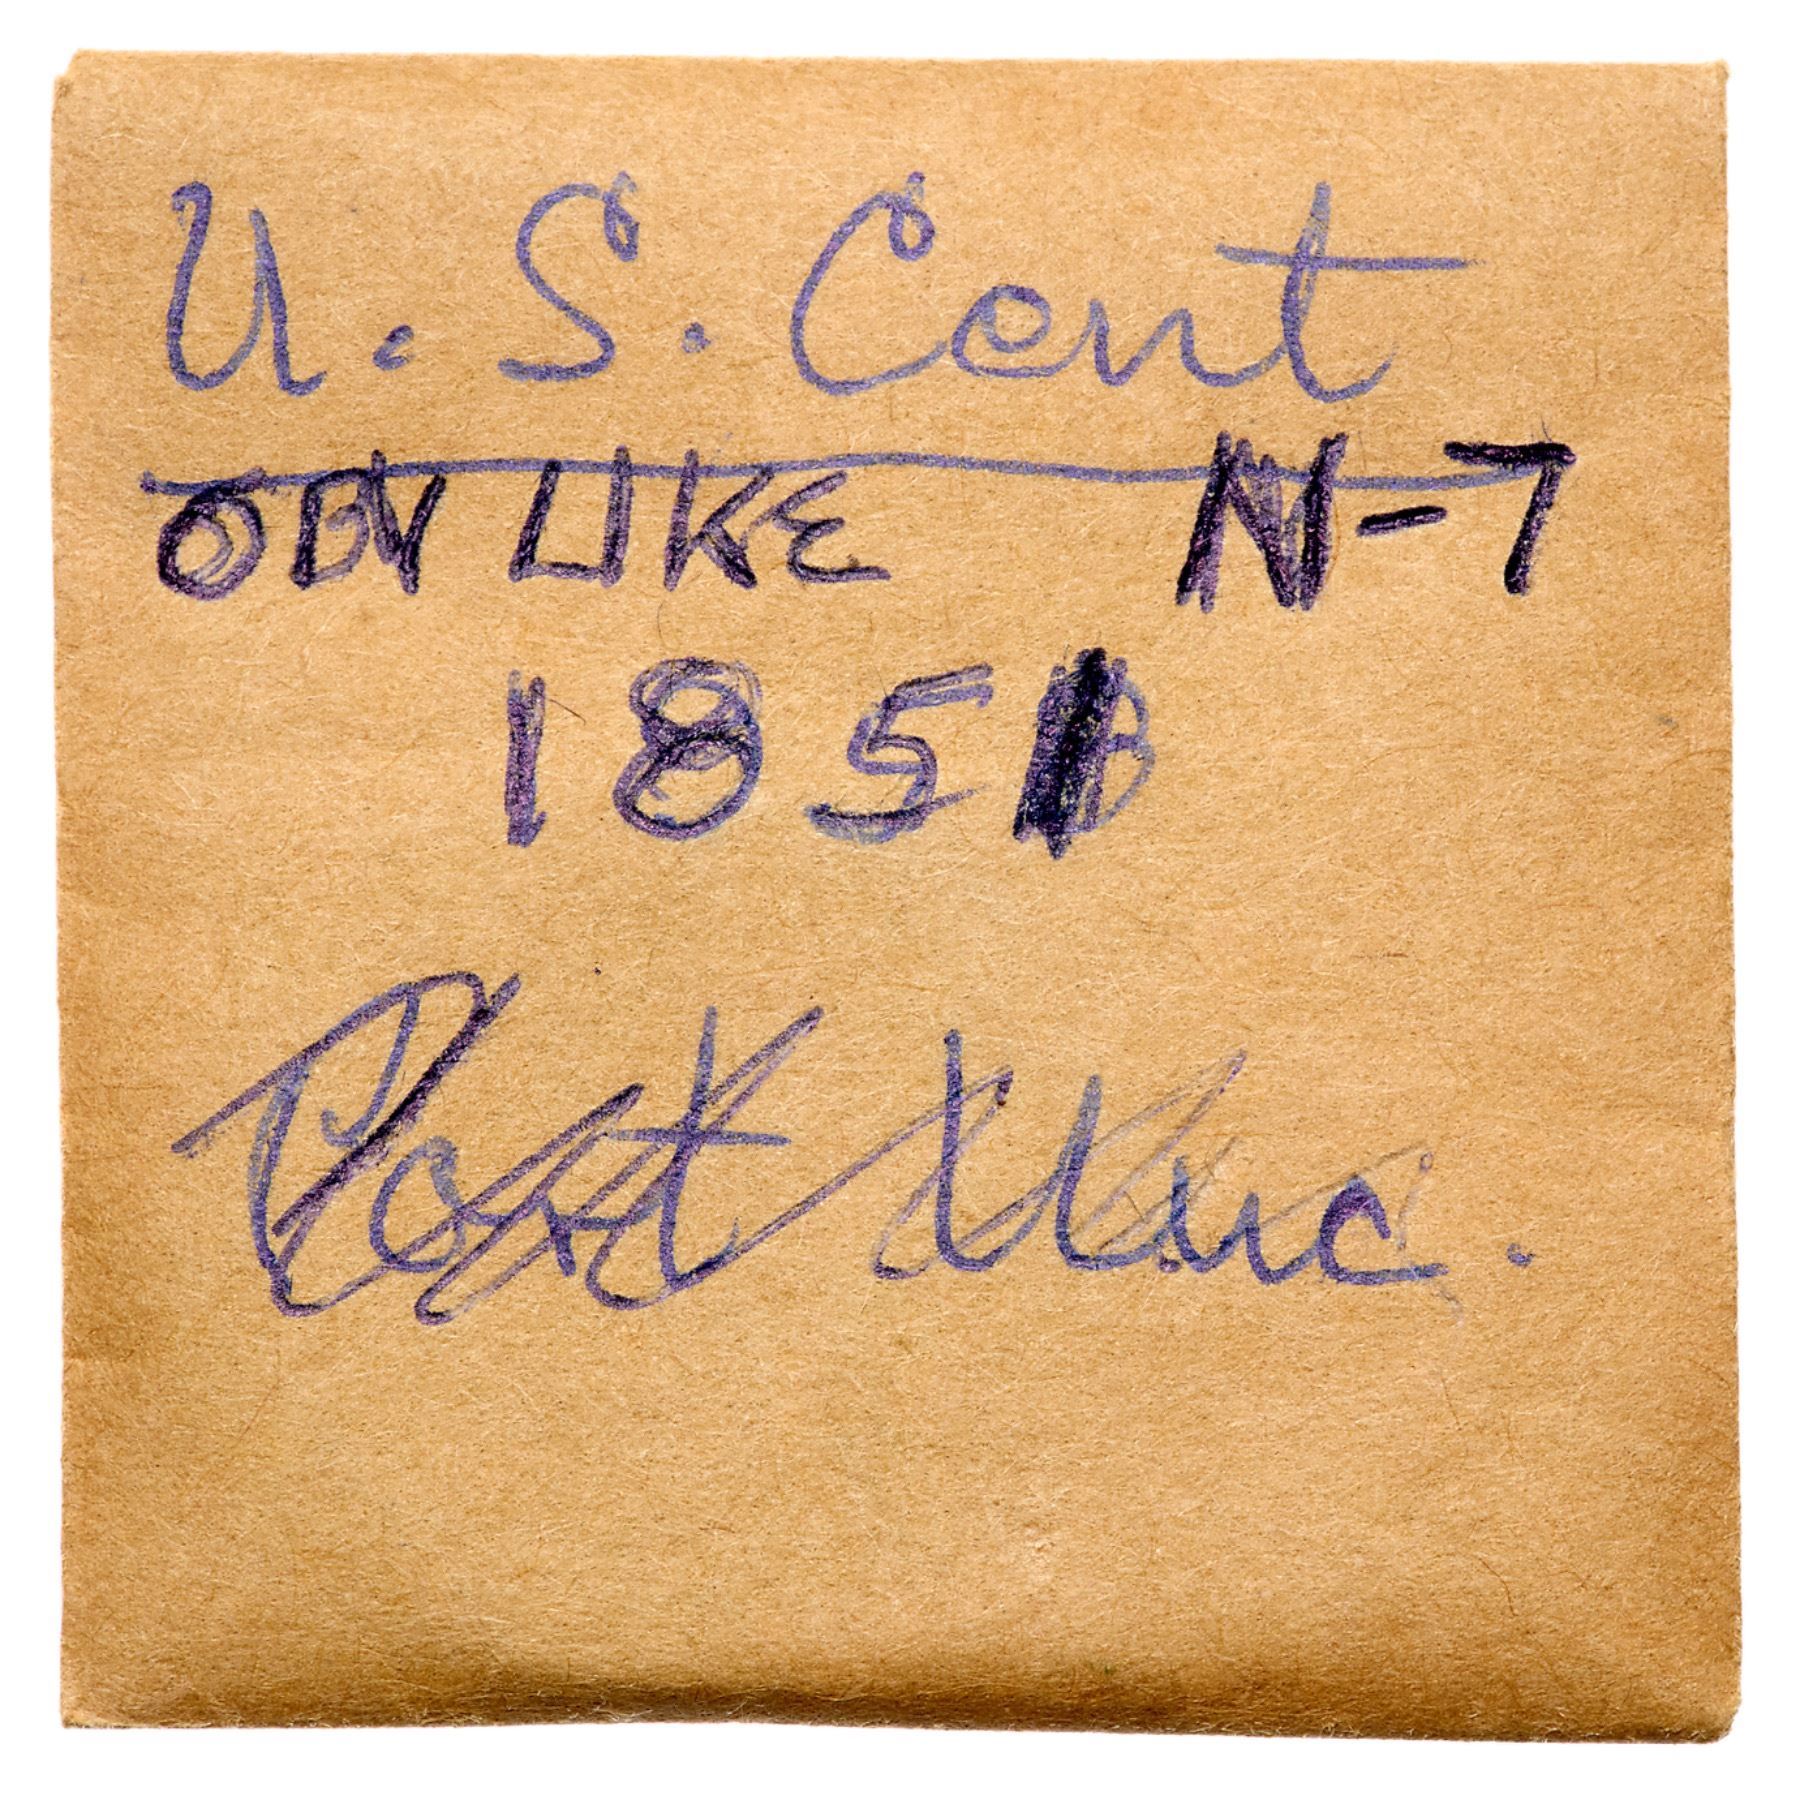 U.S. Cent
OBV LIKE N-7
1851
Part Unc.